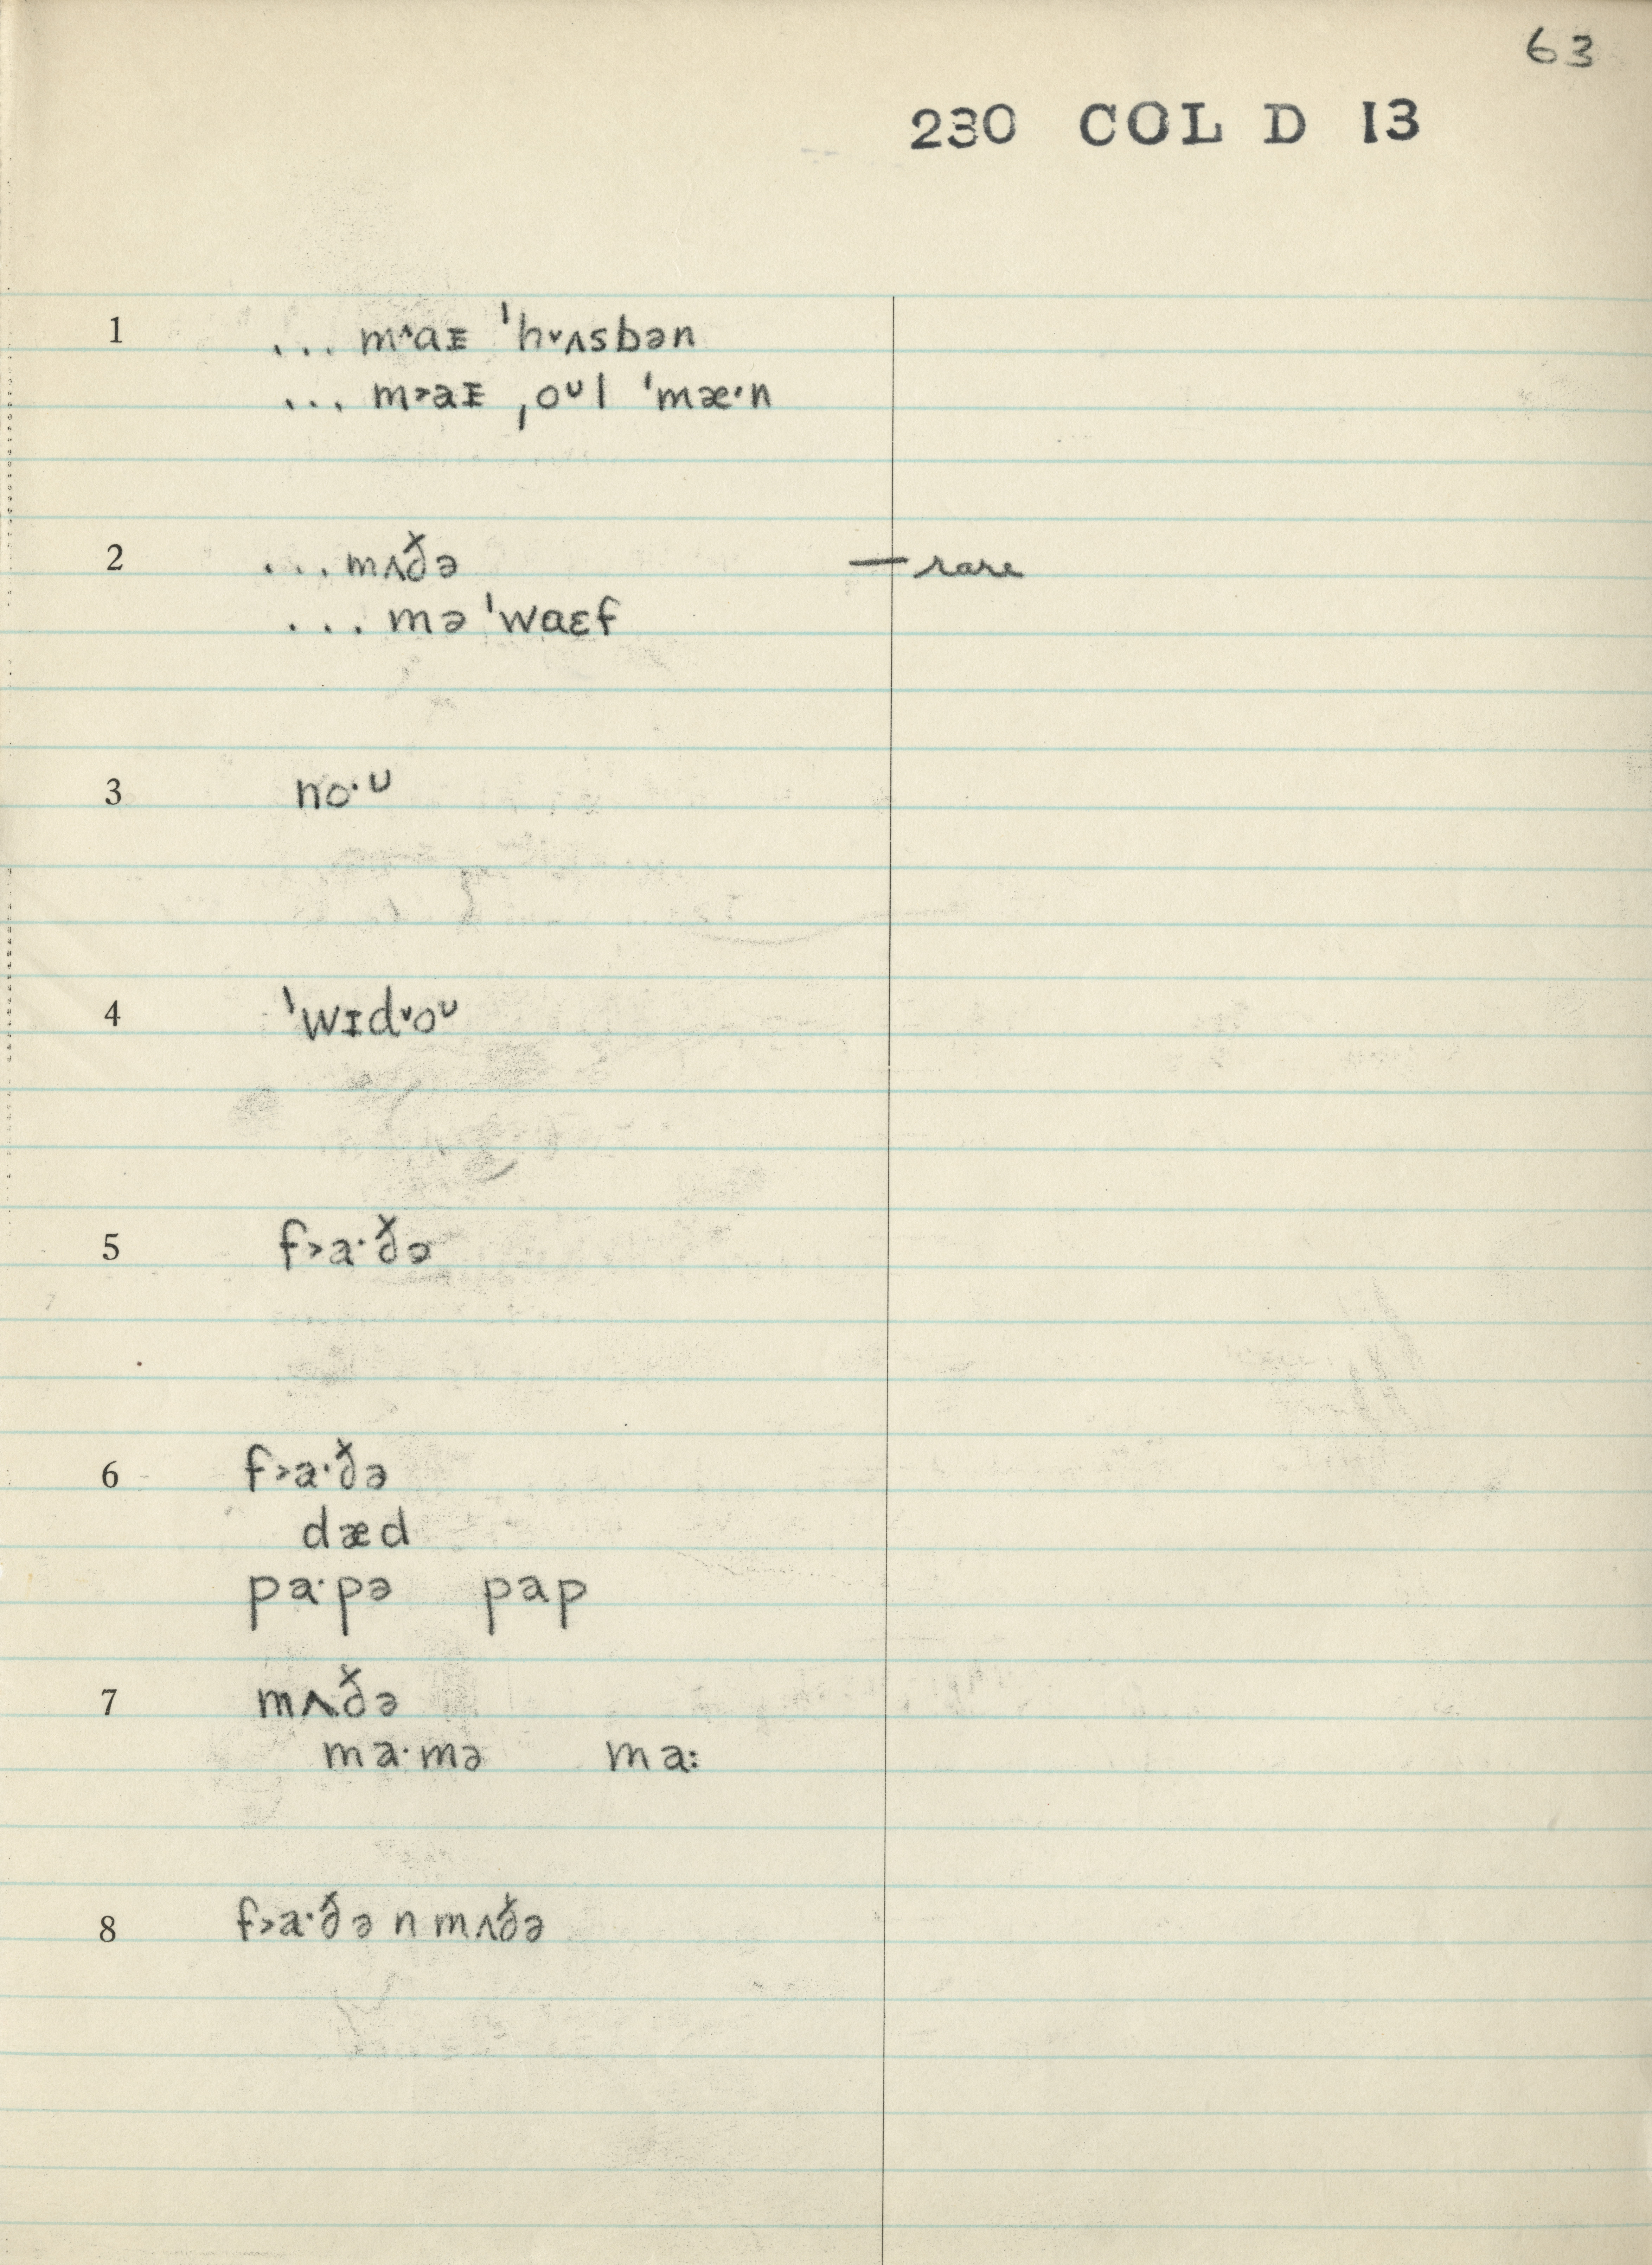 63
230 COL D 13
1 ... m˄aɪ ˈh˅ʌsbən
... m˃aɪ ˌoᴜl ˈmæ·n
2 ... mʌð̌ə — rare
... mə ˈwaɛf
3 no·ᴜ
4 ˈwɪd˅oᴜ
5 f˃a·ð̌ə
6 f˃a·ð̌ə
dæd
pa·pə pap
7 mʌð̌ə
ma·mə ma:
8 f˃a·ð̌ə n mʌð̌ə